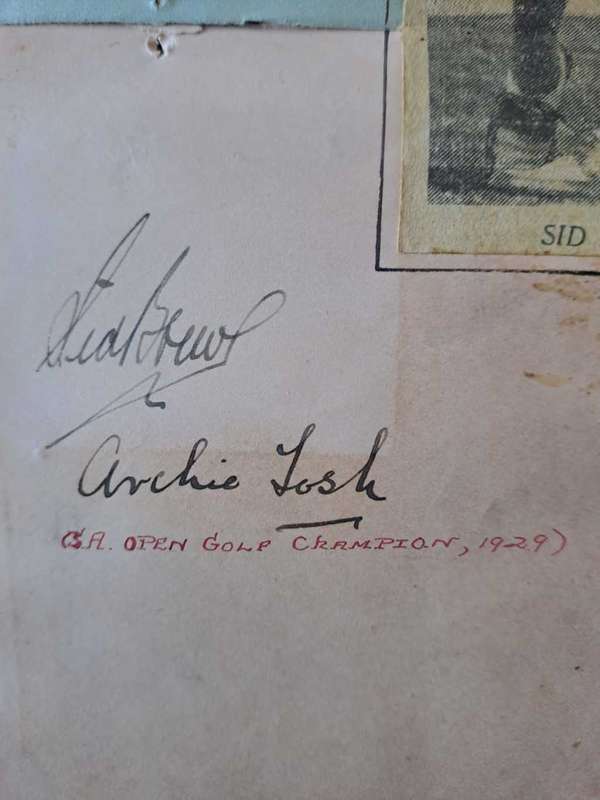 SID
Sid Brews
Archie Tosh
(S.A. OPEN GOLF CHAMPION, 1929)